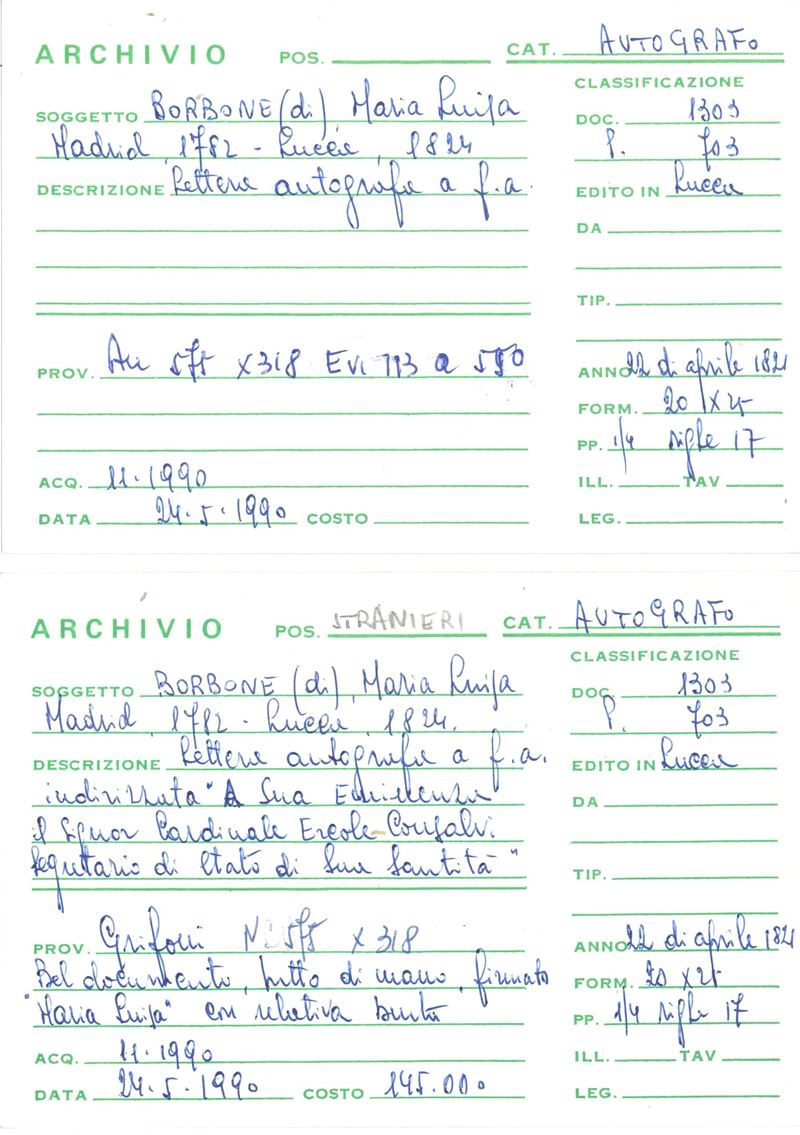 ARCHIVIO POS. CAT. AUTOGRAFO
CLASSIFICAZIONE
SOGGETTO BORBONE (di) Maria Luisa DOC. 1303
Madrid, 1782 - Lucca, 1824 P. 703
DESCRIZIONE Lettera autografa a f.a. EDITO IN Lucca
DA
TIP.
PROV. 575 X318 a 550 ANNO 22 di aprile 1821
FORM. 20 X 25
PP. 1/4 righe 17
ACQ. 11.1990 ILL. TAV
DATA 24.5.1990 COSTO LEG.
ARCHIVIO POS. STRANIERI CAT. AUTOGRAFO
CLASSIFICAZIONE
SOGGETTO BORBONE (di), Maria Luisa DOC. 1303
Madrid, 1782 - Lucca, 1824. P. 703
DESCRIZIONE Lettera autografa a f.a. EDITO IN Lucca
indirizzata "A Sua Eminenza DA
il Signor Cardinale Ercole Consalvi
Segretario di Stato di Sua Santità" TIP.
PROV. Grifoni N. 575 X 318 ANNO 22 di aprile 1821
Bel documento, tutto di mano, firmato FORM. 20 X 25
"Maria Luisa" con relativa busta PP. 1/4 righe 17
ACQ. 11.1990 ILL. TAV
DATA 24.5.1990 COSTO 145.000 LEG.